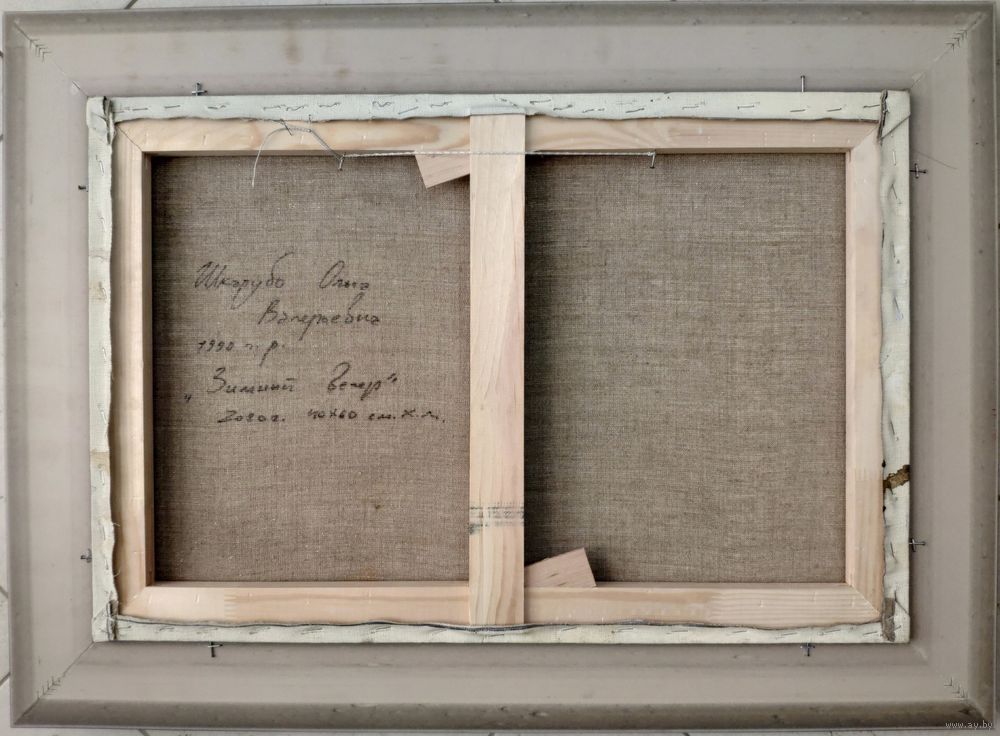 Шкарубо Ольга
Валерьевна
1990 г.р.
"Зимний вечер"
2020г. 40х60 см. х.м.
www.ay.by